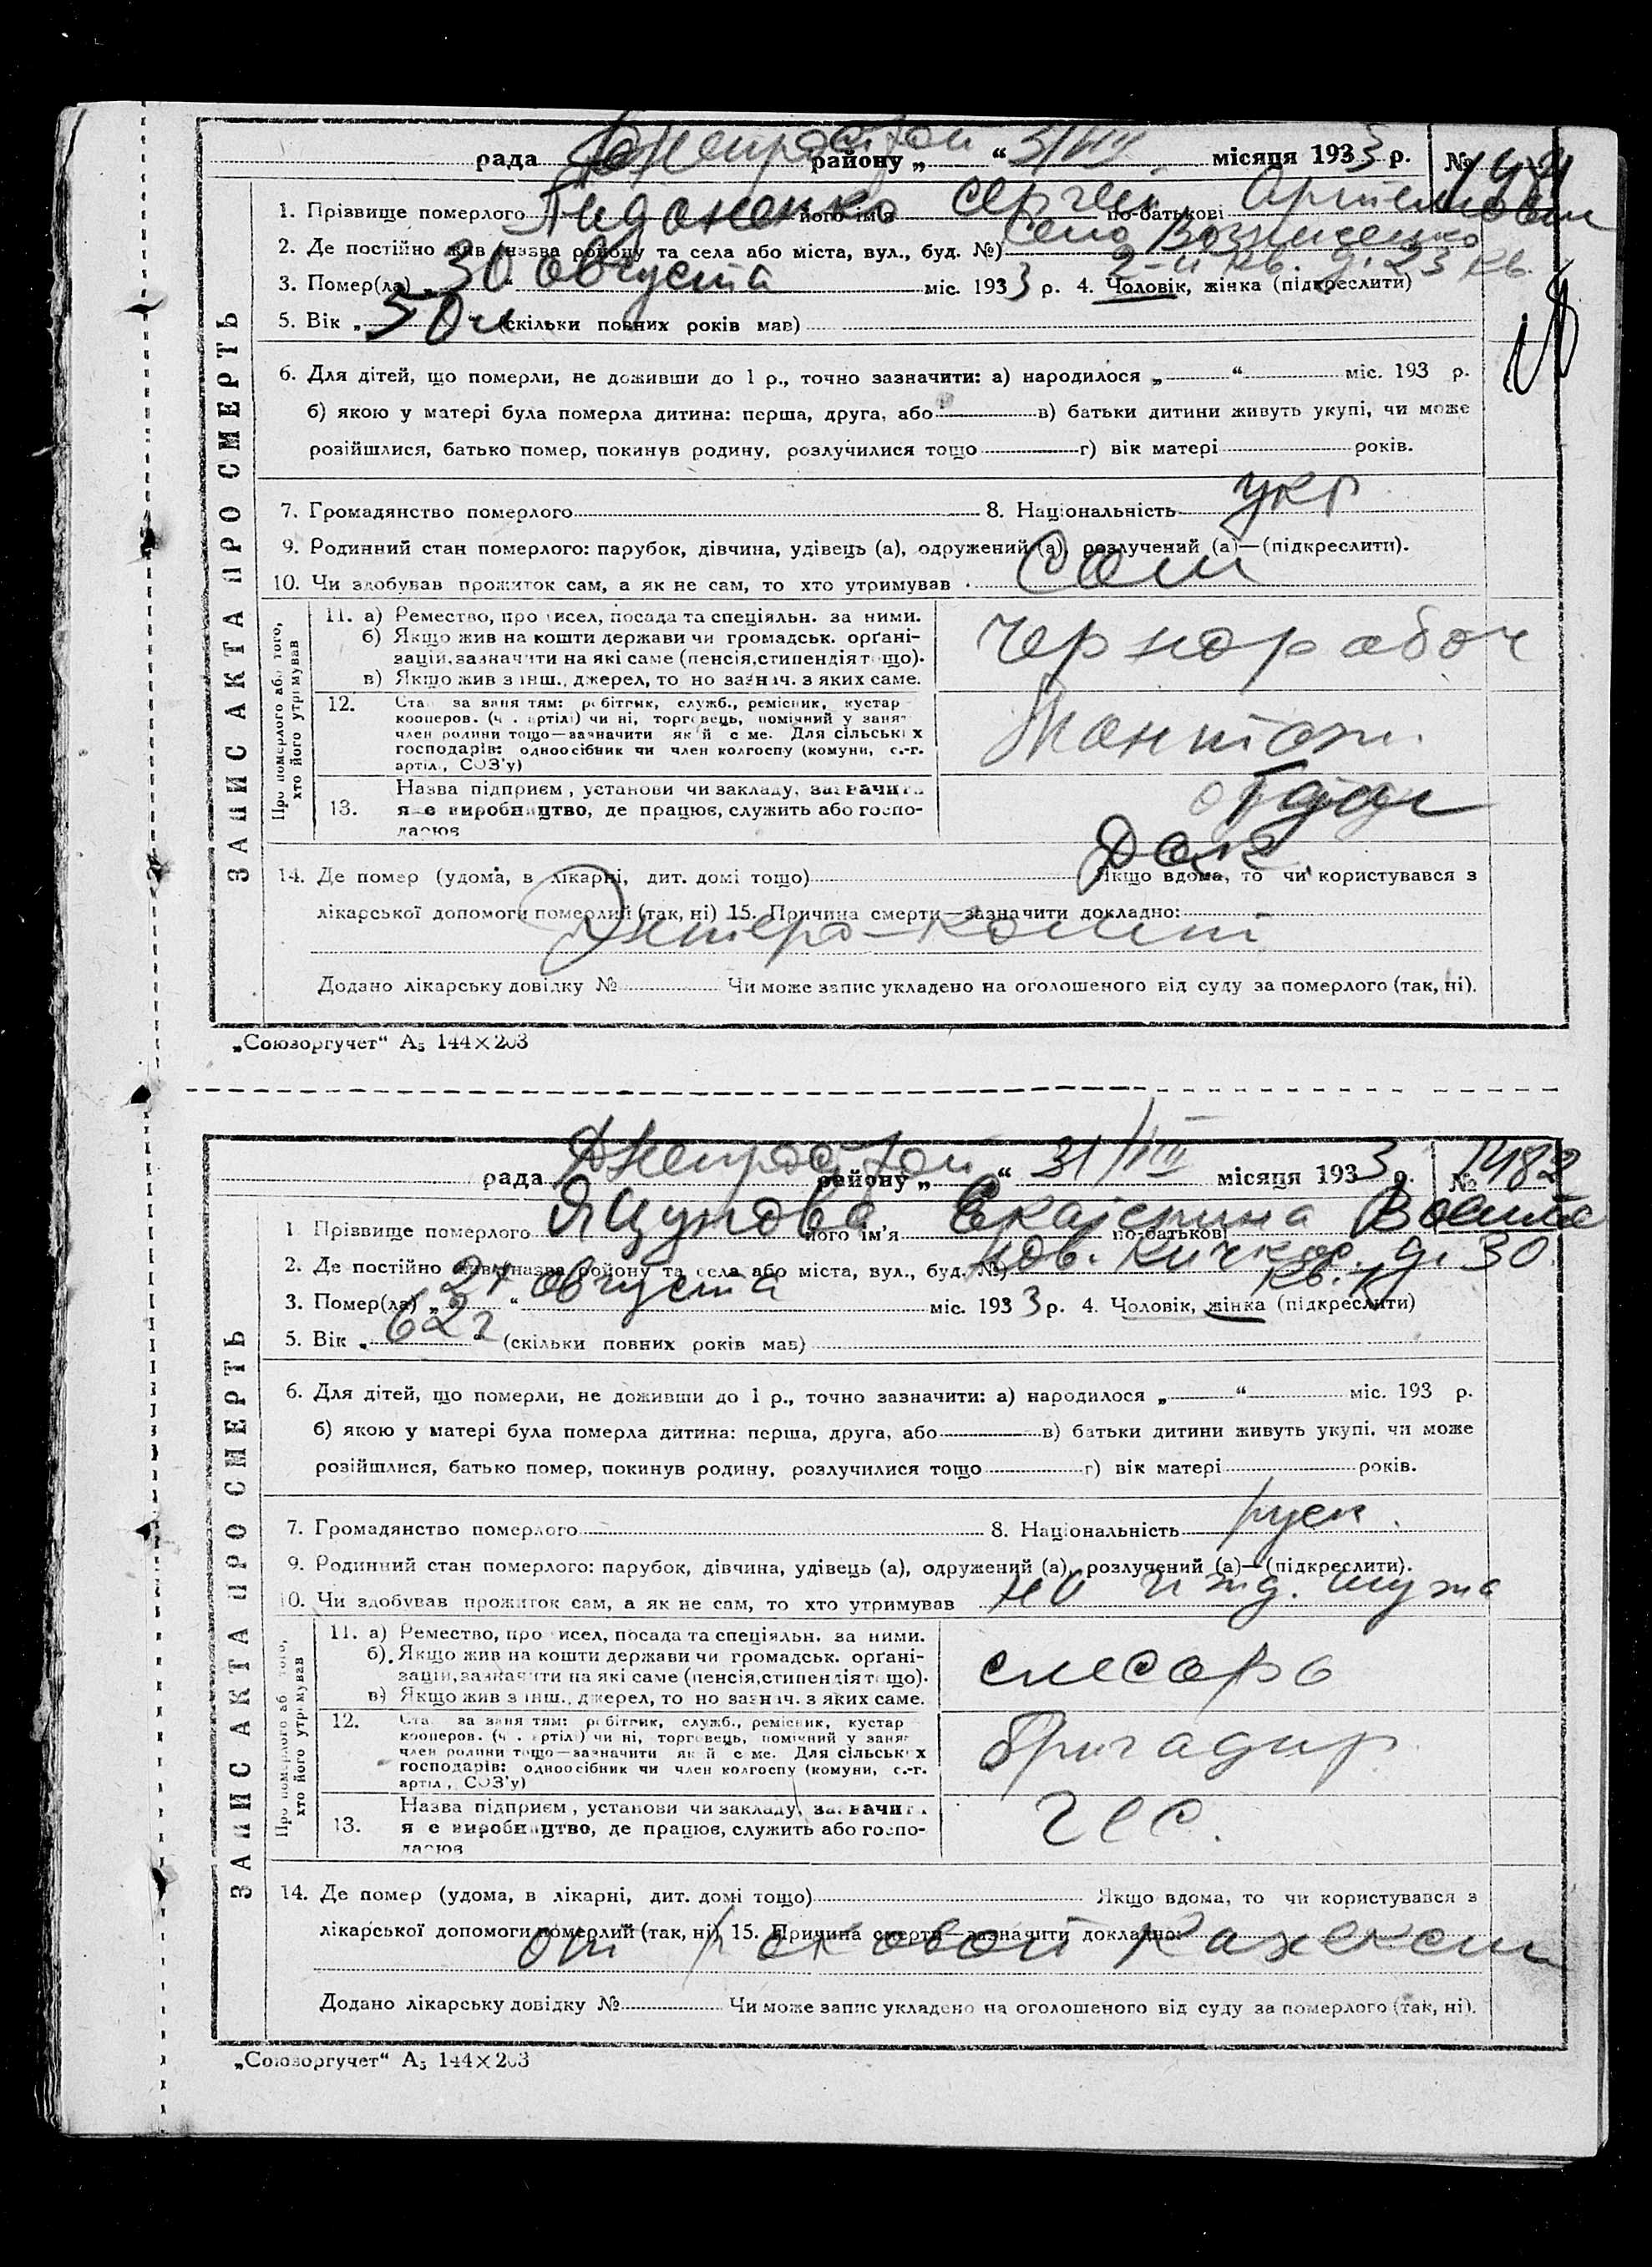 рада Днепрострой району „ “ 31/VIII місяця 1933 р. №
1. Прізвище померлого його ім'я Сергей по-батькові Артемович
2. Де постійно жив (назва району та села або міста, вул., буд. №) село Вознесенко
2-й кв. д. 23 кв.
3. Помер(ла) „ 30 “ августа міс. 1933 р. 4. Чоловік, жінка (підкреслити)
5. Вік „ 50 (скільки повних років мав)
6. Для дітей, що померли, не доживши до 1 р., точно зазначити: а) народилося „ “ міс. 193 р.
б) якою у матері була померла дитина: перша, друга, або в) батьки дитини живуть укупі, чи може
розійшлися, батько помер, покинув родину, розлучилися тощо г) вік матері років.
7. Громадянство померлого 8. Національність укр
9. Родинний стан померлого: парубок, дівчина, удівець (а), одружений (а), розлучений (а)—(підкреслити).
10. Чи здобував прожиток сам, а як не сам, то хто утримував Сам
ЗАПИС АКТА ПРО СМЕРТЬ
Про померлого або того, хто його утримував
11. а) Ремество, про исел, посада та спеціяльн. за ними.
б) Якщо жив на кошти держави чи громадськ. орґані-
зацій, зазначити на які саме (пенсія, стипендія тощо).
в) Якщо жив з інш. джерел, то но зазнач. з яких саме.
чернорабоч
12. Ста за заня тям: робітник, служб., ремісник, кустар
кооперов. (ч . артілі) чи ні, торговець, помічний у занят
член родини тощо—зазначити як й с ме. Для сільськ х
господарів: одноосібник чи член колгоспу (комуни, с.-г.
артіл., СОЗ'у)
Монтаж.
13. Назва підприєм , установи чи закладу, зазначит
я е виробництво, де працює, служить або госпо-
дарює
отдел
14. Де помер (удома, в лікарні, дит. домі тощо) Якщо вдома, то чи користувався з
лікарської допомоги померлий (так, ні) 15. Причина смерти—зазначити докладно:
Энтеро-колит
Додано лікарську довідку № Чи може запис укладено на оголошеного від суду за померлого (так, ні).
„Союзоргучет“ А5 144×203
рада Днепрострой району „ “ 31/VIII місяця 1933 р. № 1482
1. Прізвище померлого Яцунова його ім'я Екатерина по-батькові
2. Де постійно жив (назва району та села або міста, вул., буд. №) нов. Кичкас д. 30
кв.
3. Помер(ла) „ “ августа міс. 1933 р. 4. Чоловік, жінка (підкреслити)
5. Вік „ 62 г (скільки повних років мав)
6. Для дітей, що померли, не доживши до 1 р., точно зазначити: а) народилося „ “ міс. 193 р.
б) якою у матері була померла дитина: перша, друга, або в) батьки дитини живуть укупі, чи може
розійшлися, батько помер, покинув родину, розлучилися тощо г) вік матері років.
7. Громадянство померлого 8. Національність русск.
9. Родинний стан померлого: парубок, дівчина, удівець (а), одружений (а), розлучений (а)—(підкреслити).
10. Чи здобував прожиток сам, а як не сам, то хто утримував на ижд. мужа
ЗАПИС АКТА ПРО СМЕРТЬ
Про померлого або того, хто його утримував
11. а) Ремество, про исел, посада та спеціяльн. за ними.
б) Якщо жив на кошти держави чи громадськ. орґані-
зацій, зазначити на які саме (пенсія, стипендія тощо).
в) Якщо жив з інш. джерел, то но зазнач. з яких саме.
слесарь
12. Ста за заня тям: робітник, служб., ремісник, кустар
кооперов. (ч . артілі) чи ні, торговець, помічний у занят
член родини тощо—зазначити як й с ме. Для сільськ х
господарів: одноосібник чи член колгоспу (комуни, с.-г.
артіл., СОЗ'у)
бригадир
13. Назва підприєм , установи чи закладу, зазначит
я е виробництво, де працює, служить або госпо-
дарює
ГЕС.
14. Де помер (удома, в лікарні, дит. домі тощо) Якщо вдома, то чи користувався з
лікарської допомоги померлий (так, ні) 15. Причина смерти—зазначити докладно:
от раковой кахексии
Додано лікарську довідку № Чи може запис укладено на оголошеного від суду за померлого (так, ні).
„Союзоргучет“ А5 144×203